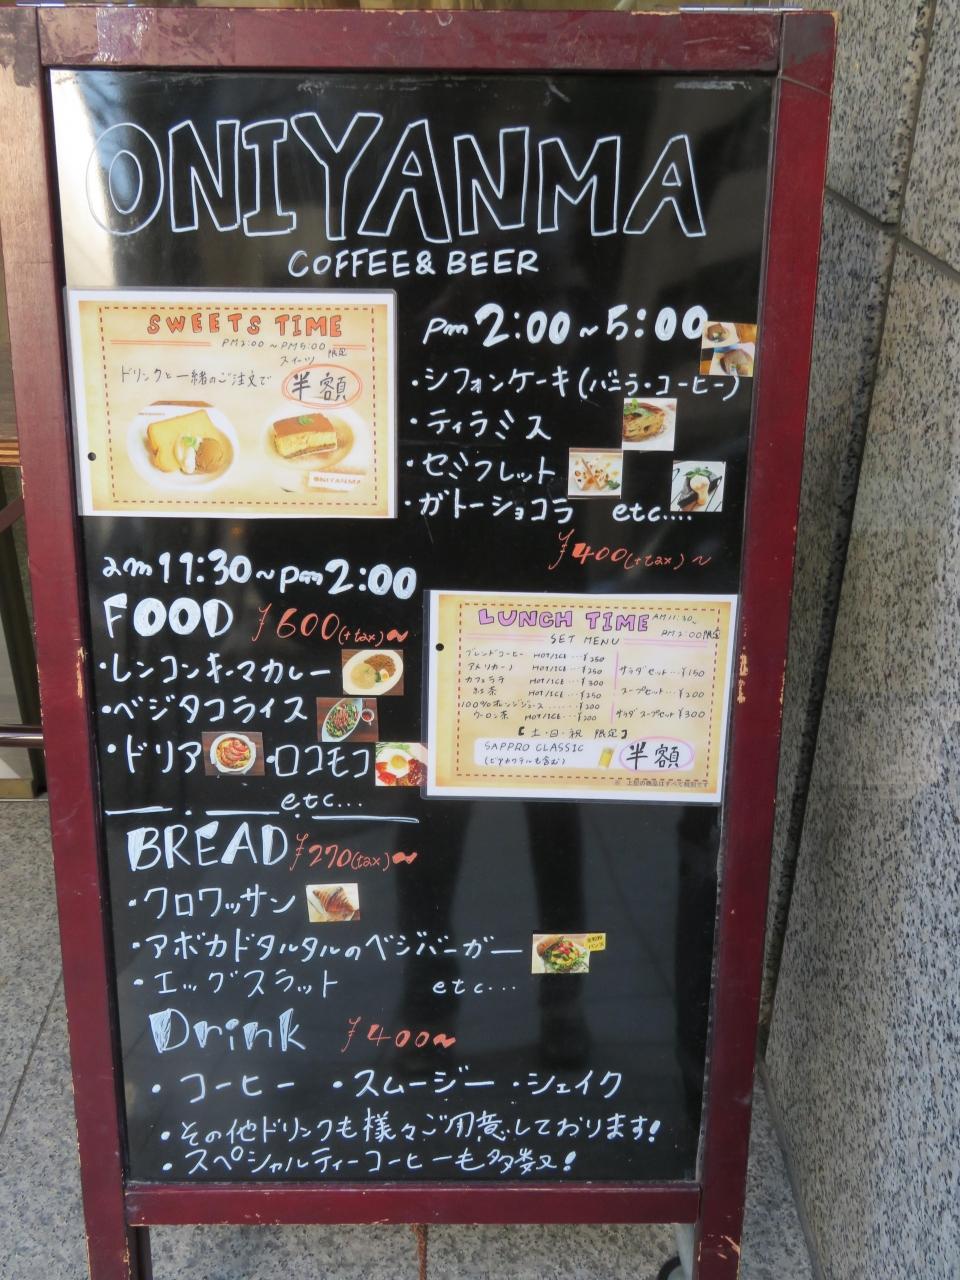 ONIYANMA
COFFEE & BEER
SWEETS TIME
PM2:00 ~ PM5:00
スイーツ 限定
ドリンクと一緒のご注文で 半額
ONIYANMA
pm 2:00 ~ 5:00
・シフォンケーキ (バニラ・コーヒー)
・ティラミス
・セミフレット
・ガトーショコラ etc....
¥400(+tax)~
am 11:30 ~ pm 2:00
FOOD ¥600(+tax)~
・レンコンキーマカレー
・ベジタコライス
・ドリア ・ロコモコ
etc...
LUNCH TIME AM11:30~
PM2:00限定
SET MENU
ブレンドコーヒー HOT/ICE...¥250
アメリカーノ HOT/ICE...¥250
カフェラテ HOT/ICE...¥300
紅茶 HOT/ICE...¥250
100%オレンジジュース....¥200
ウーロン茶 HOT/ICE...¥200
サラダセット...¥150
スープセット...¥200
サラダスープセット¥300
【土・日・祝 限定】
SAPPRO CLASSIC
(ビアカクテルも含む) 半額
※ 上記の商品はすべて税別です
BREAD ¥270(tax)~
・クロワッサン
・アボカドタルタルのベジバーガー
・エッグスラット etc...
Drink ¥400~
・コーヒー ・スムージー ・シェイク
・その他ドリンクも様々ご用意しております!
・スペシャルティーコーヒーも多数!